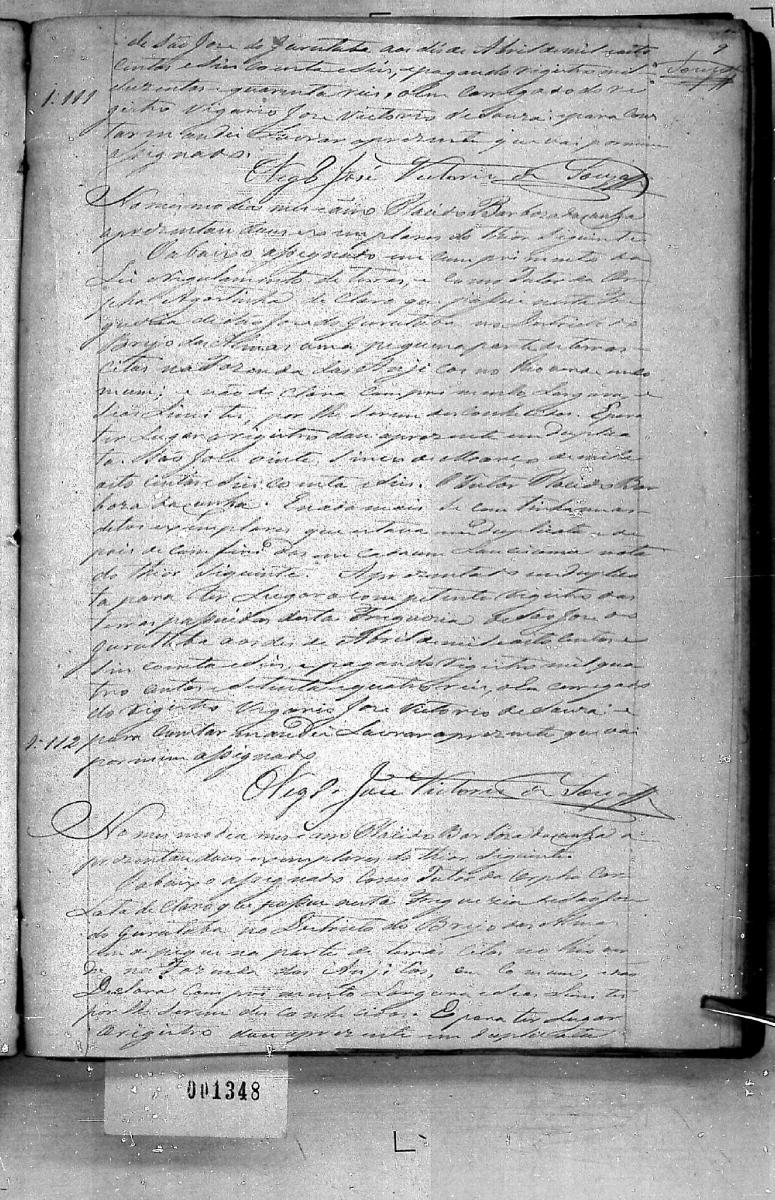 9
Souza
de São Jose do Gurutuba aos dis de Abril de mil oito
centos e sincoenta e seis, e pagando registro mil
duzentos e quarenta reis, o En carregado do re
N. 111
gistro Vigario Jose Victorio de Souza: e para cons
tar mandei Lavrar a prezente que vai por mim
assignado.
O Vigro Jose Victorio de Souza
No mesmo dia mes e anno Placido Barboza da cunha
aprezentou dous exemplares do thior Siguinte
O abaixo assignado em cum primento da
Lei e regulamento de terras, e como Tutor da Or
pha Agostinha de Clara que possue nesta Fre
guezia de São Jose do Gurutuba no Destricto do
Brejo das Almas uma pequena parte de terras
citas na Fazenda das Anjicos no Rio verde em co
mum; e não de Clara Com pri mento Largura e
seos Limites, por lhe serem des conhecidos. E para
ter Lugar o registro dou aprezente em duplica
ta. São Jose vinte sinco de Março de mil e
oito centos e sin coenta e seis. O Tutor Placido Bar
boza da cunha. E nada mais se con tinha em os
ditos exemplares, que estava em duplicata e de
pois de com firi dos
do thior Siguinte. Aprezentado em duplica
ta para ter Lugar o com petente registro das
terras possuidas desta Freguezia de São Jose do
Gurutuba aos des de Abril de mil e oito centos e
sin coenta e seis, e pagando registro mil qua
tro centos e setenta e quatro reis, o En carregado
do registro Vigario Jose Victorio de Souza: e
N. 112
para Constar mandei Lavrar aprezente que vai
por mim assignado
O Vigro Jose Victorio de Souza
No mes mo dia mes e anno Placido Barboza da cunha a
prezentou dous exemplares do thior Siguinte
O abaixo assignado Como Tutor da Orpha Con
Lata de Clara que possue nesta Freguezia de São Jose
do Gurutuba no Destricto do Brejo das Almas
um a peque na parte de terras citas no Rio ver
de na Fazenda dos Anjicos, em Co mum, e não
Declara Com pri mento Largura e seos Limites
por lhe serem des conhecidos. E para ter Lugar
o registro dou aprezente em duplicata
001348